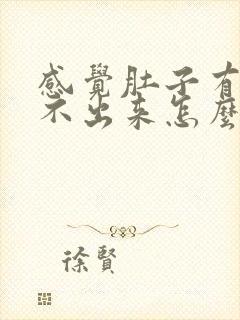 感覺肚子有
不出来怎麼
徐賢